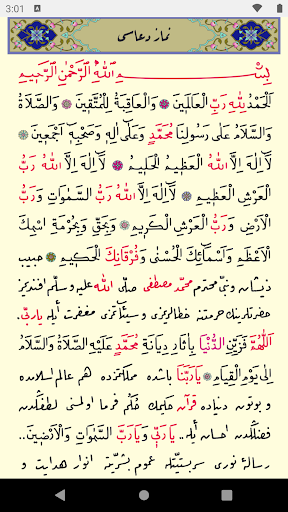 3:01
نماز دعاسی
بِسْمِ اللّٰهِ الرَّحْمٰنِ الرَّحِيمِ
اَلْحَمْدُ لِلّٰهِ رَبِّ الْعَالَمِينَ ❁ وَالْعَاقِبَةُ لِلْمُتَّقِينَ ❁ وَالصَّلَاةُ
وَالسَّلَامُ عَلٰى رَسُولِنَا مُحَمَّدٍ وَعَلٰى اٰلِهِ وَصَحْبِهِ اَجْمَعِينَ ❁
لَا اِلٰهَ اِلَّا اللّٰهُ الْعَظِيمُ الْحَلِيمُ ❁ لَا اِلٰهَ اِلَّا اللّٰهُ رَبُّ
الْعَرْشِ الْعَظِيمِ ❁ لَا اِلٰهَ اِلَّا اللّٰهُ رَبُّ السَّمٰوَاتِ وَرَبُّ
الْاَرْضِ وَرَبُّ الْعَرْشِ الْكَرِيمِ ❁ وَبِحَقِّ وَبِحُرْمَةِ اسْمِكَ
الْاَعْظَمِ وَاَسْمَائِكَ الْحُسْنٰى وَفُرْقَانِكَ الْحَكِيمِ ❁ حبيب
ذيشان ونبئ محترم محمد مصطفى صلى الله عليه وسلم افنديمز
حضرتلرينك حرمتنه خطالريمزى وسيئاتمزى مغفرت أيله ياربى
اَللّٰهُمَّ فَزَيِّنِ الدُّنْيَا بِاٰثَارِ دِيَانَةِ مُحَمَّدٍ عَلَيْهِ الصَّلَاةُ وَالسَّلَامُ
اِلٰى يَوْمِ الْقِيَامِ ❁ يَارَبَّنَا باشده مملكتمزده هم عالم اسلامده
و بوتون دنياده قرآن حكيمك حكم فرما اولمسنى لطفكدن
فضلكدن احسان أيله.. يَارَبِّى وَيَارَبَّ السَّمٰوَاتِ وَالْاَرَضِينَ..
رسالۀ نورى سربستيتله عموم بشريته انوار هدايت و